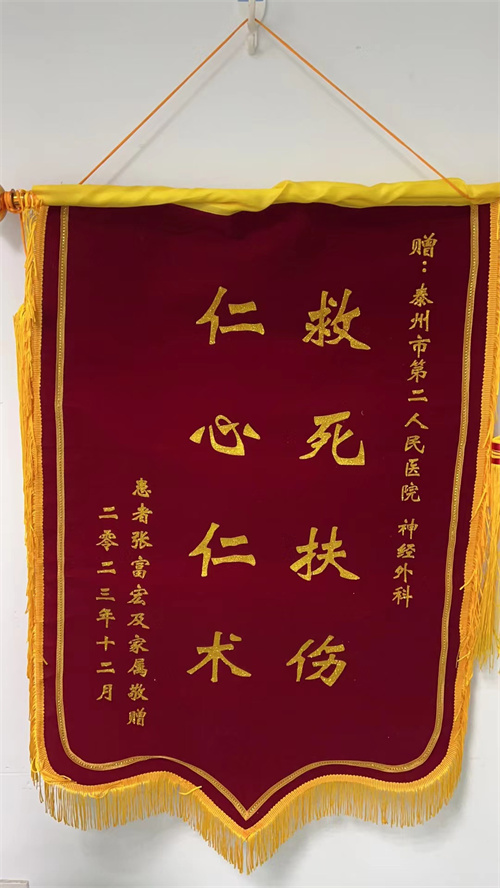 赠：泰州市第二人民医院 神经外科
救死扶伤
仁心仁术
患者张富宏及家属敬赠
二零二三年十二月